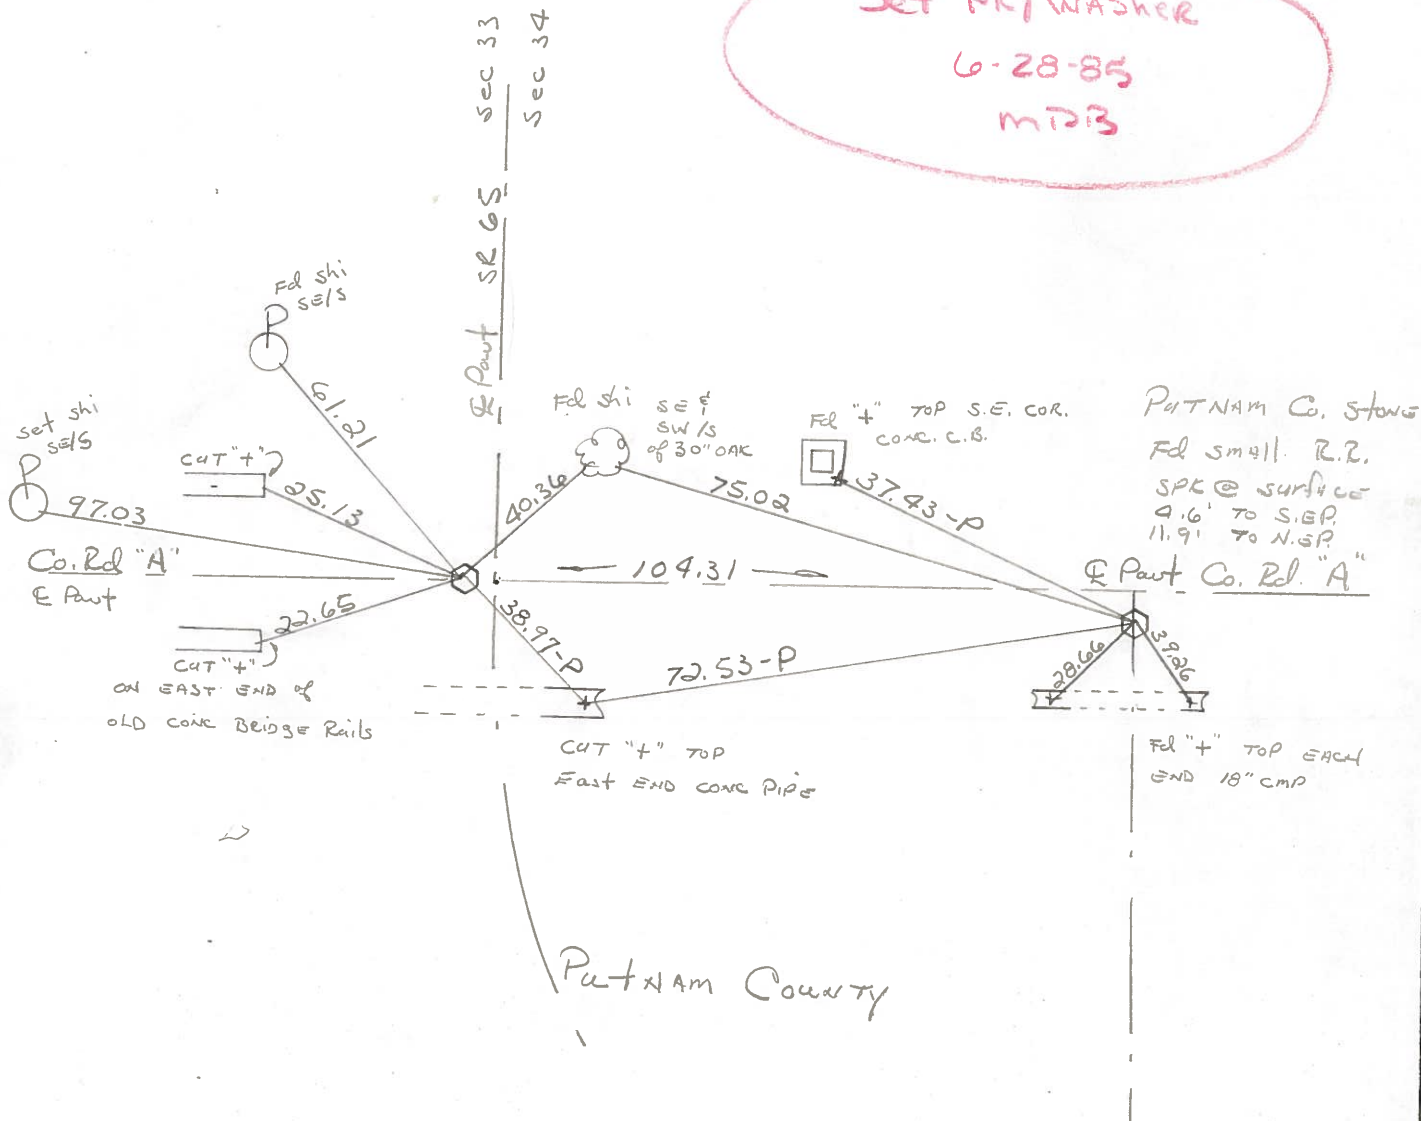 Set PK/WASHER
6-28-85
MDB
Sec 33
Sec 34
℄ Pavt SR 65
Fd shi
SE/S
61.21
set shi
SE/S
97.03
CUT "+"
25.13
Co. Rd "A"
℄ Pavt
22.65
CUT "+"
ON EAST END of
OLD CONC BRIDGE Rails
Fd shi SE &
SW/S
of 30" OAK
40.36
75.02
Fd "+" TOP S.E. COR.
CONC. C.B.
37.43-P
104.31
38.97-P
72.53-P
CUT "+" TOP
East END CONC PIPE
PUTNAM Co. Stone
Fd small R.R.
SPK @ surface
9.6' TO S.EP.
11.9' TO N.EP.
℄ Pavt Co. Rd. "A"
28.66
39.26
Fd "+" TOP EACH
END 18" CMP
PUTNAM COUNTY